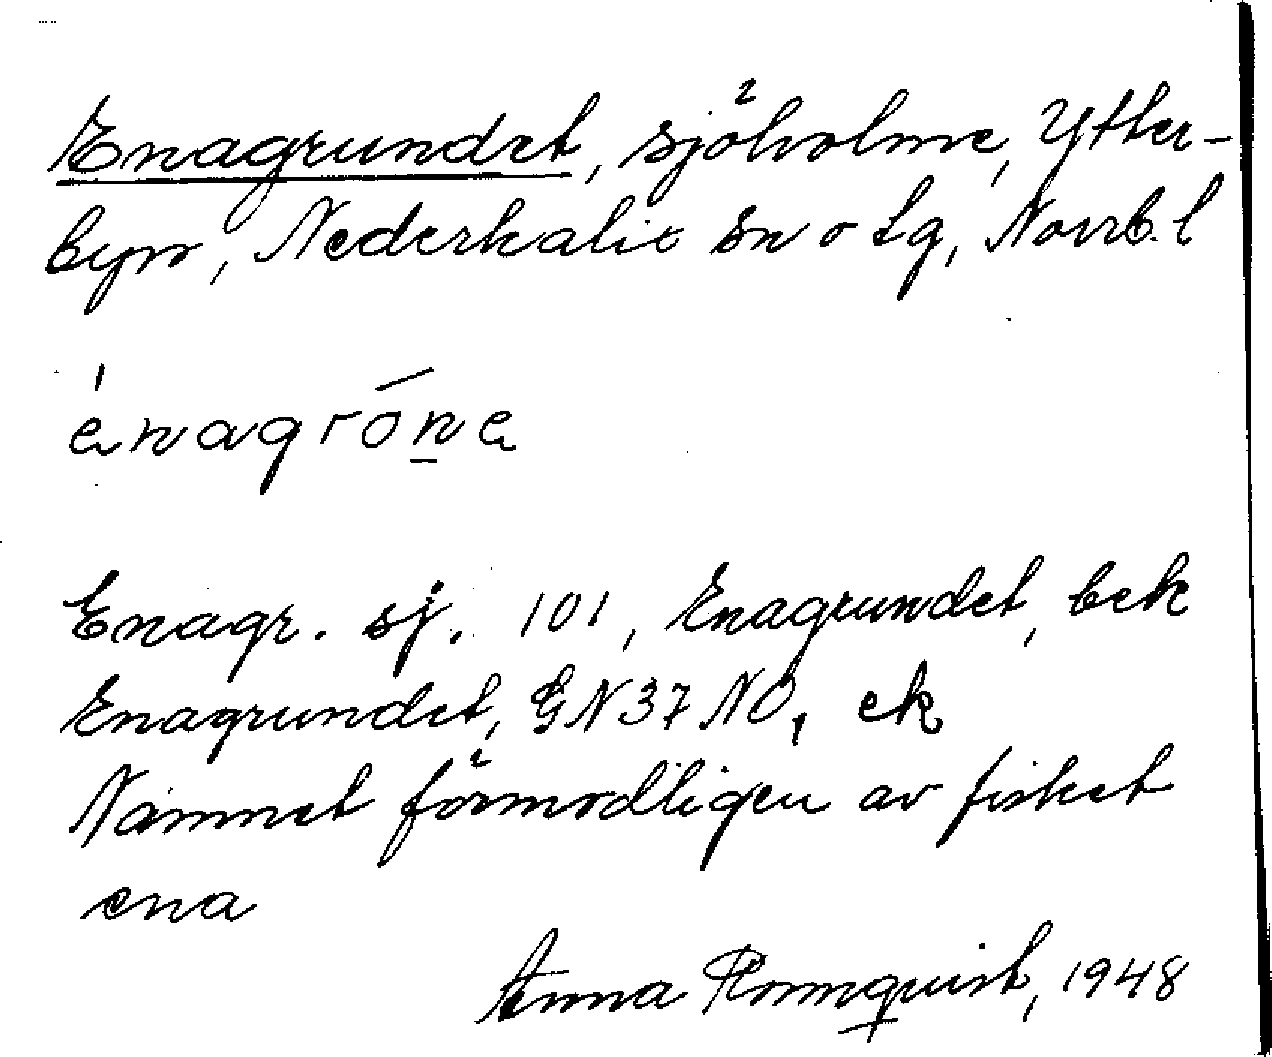 Enagrundet, sjöholme, Ytter-
byn, Nederkalix sn o tg, Norrb. l
énagróne
Enagr. sj. 101, Enagrundet, bek
Enagrundet, GN 37 NO, ek
Namnet förmodligen av fisket
ena
Anna Romquist, 1948